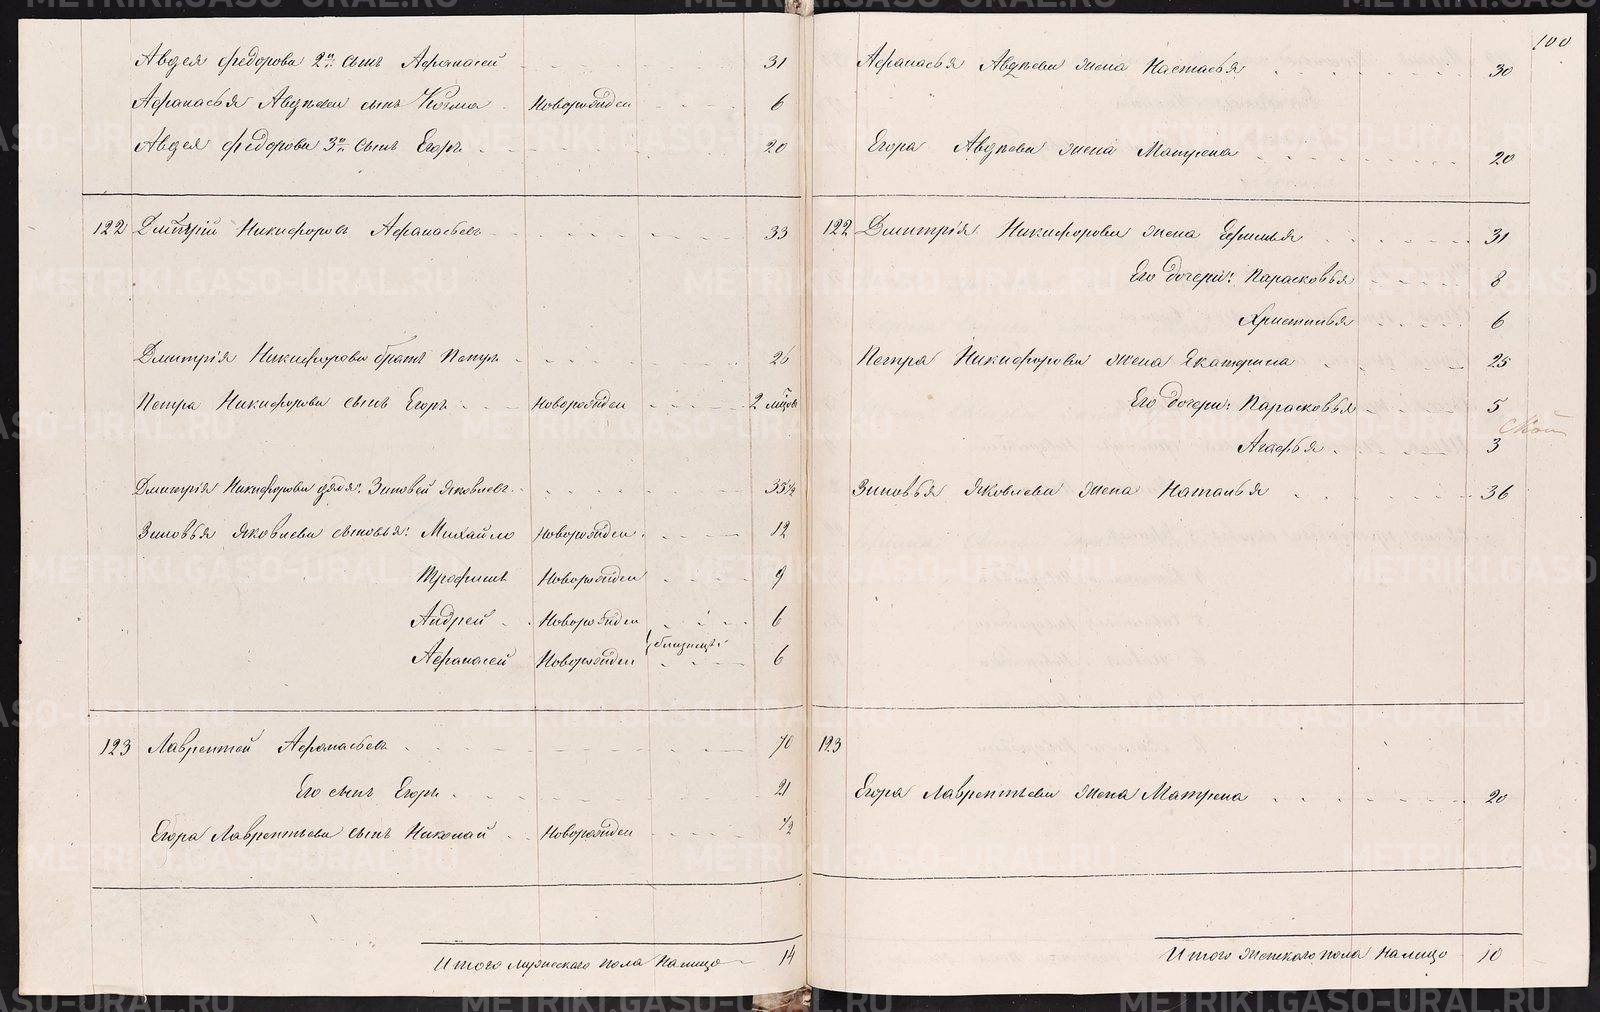 Авдея Федорова 2й сынъ Афанасей 31
Афанасья Авдѣева сынъ Козма Новорожден 6
Авдея Федорова 3й сынъ Егоръ 20
122 Дмитрій Никифоровъ Афанасьевъ 33
Дмитрія Никифорова братъ Петръ 26
Петра Никифорова сынъ Егоръ Новорожден 2 мѣсяц
Дмитрія Никифорова дядя: Зиновей Яковлевъ 35½
Зиновья Яковлева сыновья: Михайло Новорожден 12
Трофимъ Новорожден 9
Андрей Новорожден 6
близнецы
Афанасей Новорожден 6
123 Лаврентей Афанасьевъ 70
Его сынъ Егоръ 21
Егора Лаврентьева сынъ Николай Новорожден ½
Итого мужескаго пола налицо 14
100
Афанасья Авдѣева жена Настасья 30
Егора Авдѣева жена Матрена 20
122 Дмитрія Никифорова жена Ефимья 31
Его дочери: Парасковья 8
Христинья 6
Петра Никифорова жена Екатерина 25
Его дочери: Парасковья 5
Агафья 3
Зиновья Яковлева жена Наталья 36
123
Егора Лаврентьева жена Матрена 20
Итого женскаго пола налицо 10
METRIKI.GASO-URAL.RU